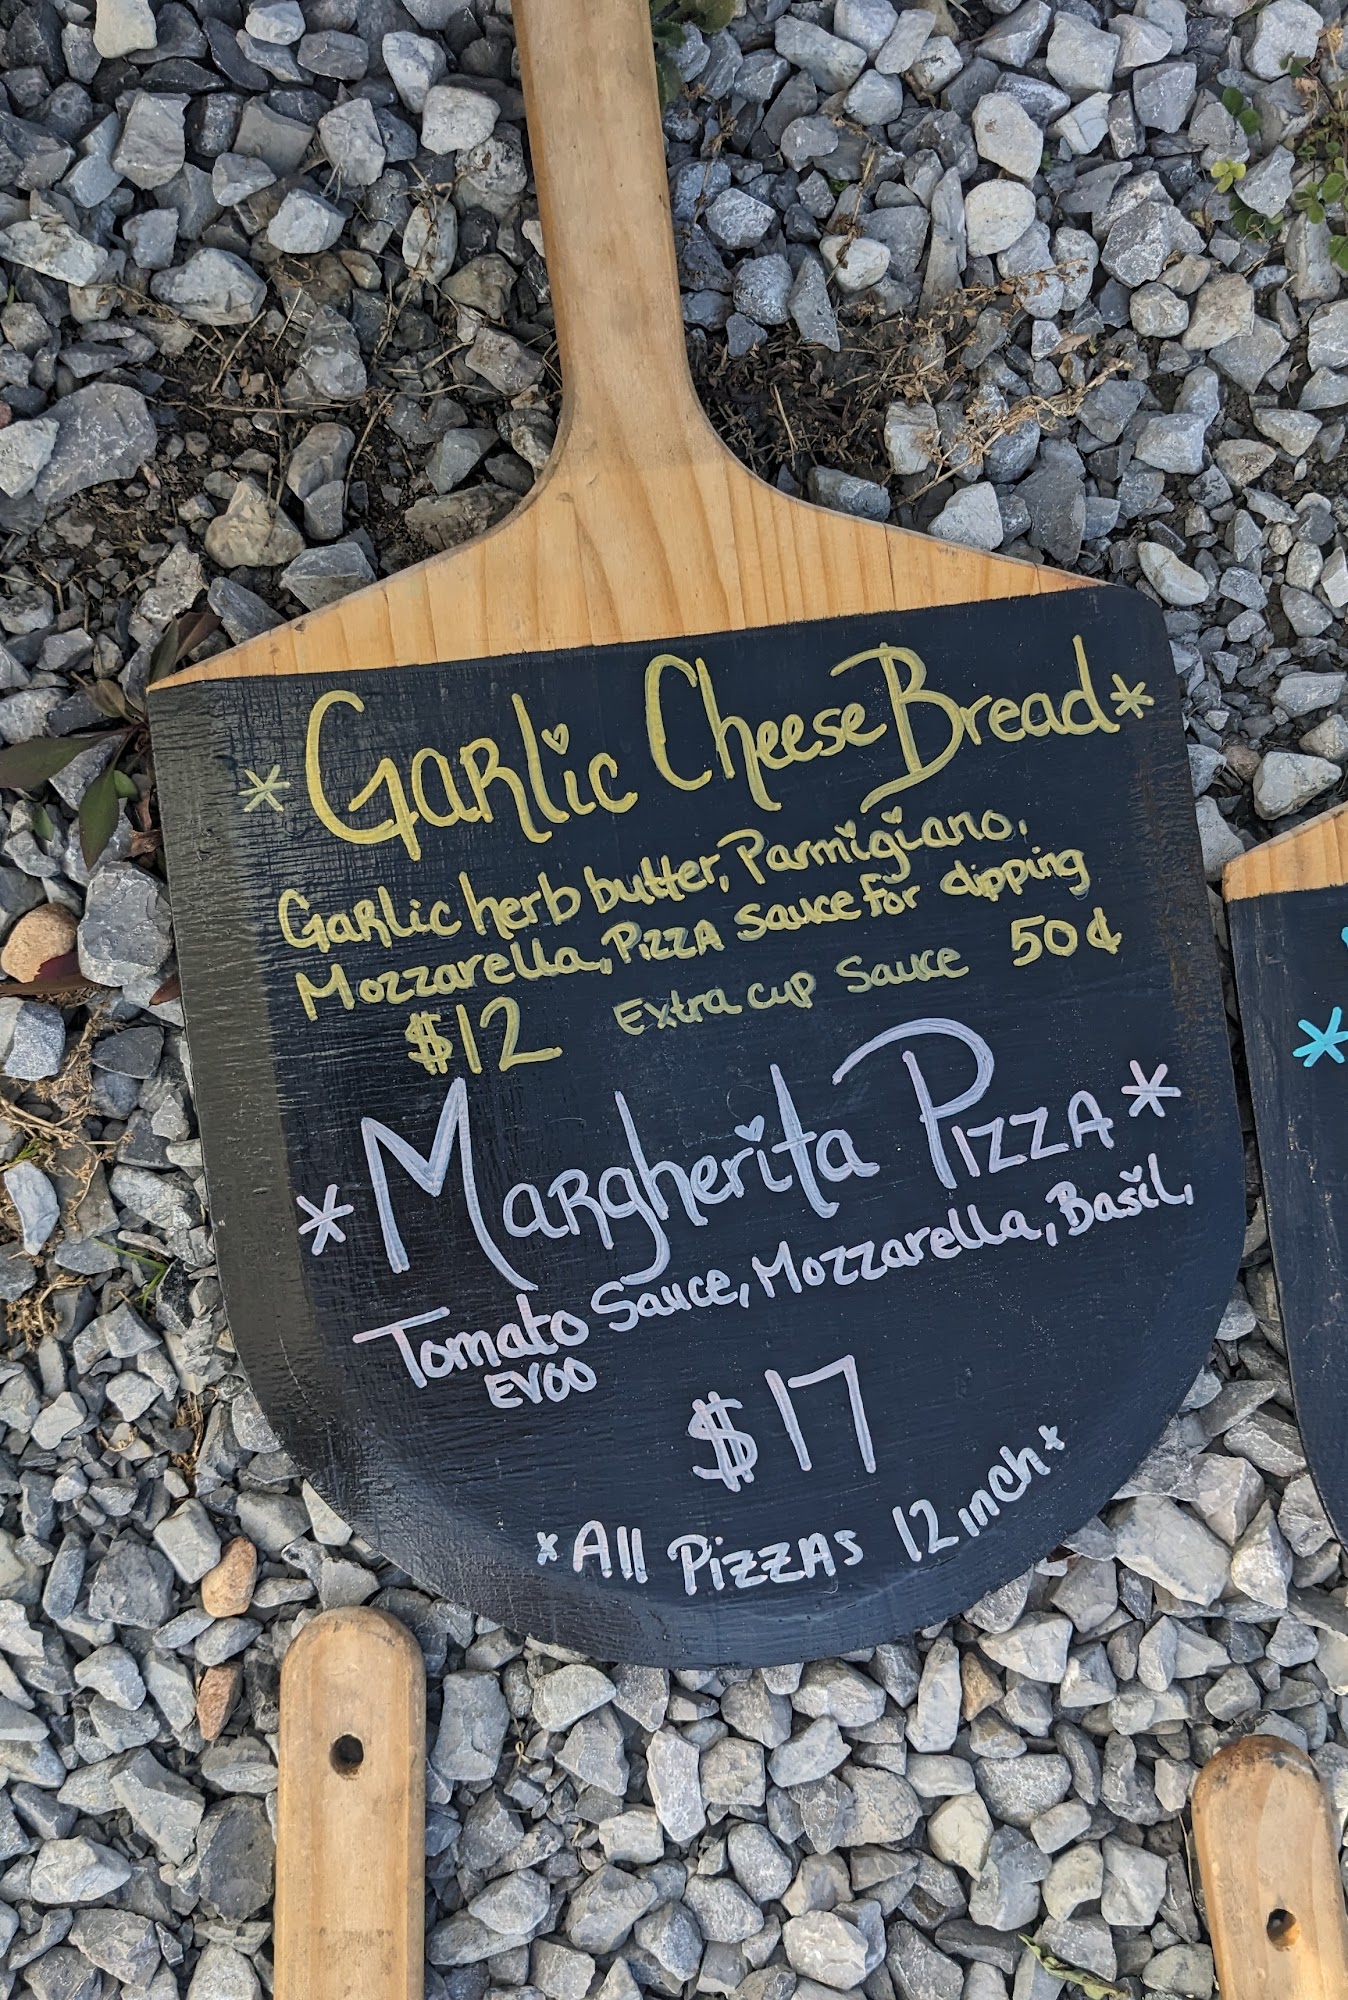 * Garlic Cheese Bread *
Garlic herb butter, Parmigiano,
Mozzarella, Pizza sauce for dipping
$12 Extra cup sauce 50¢
* Margherita Pizza *
Tomato Sauce, Mozzarella, Basil,
EVOO
$17
* All Pizzas 12 inch *